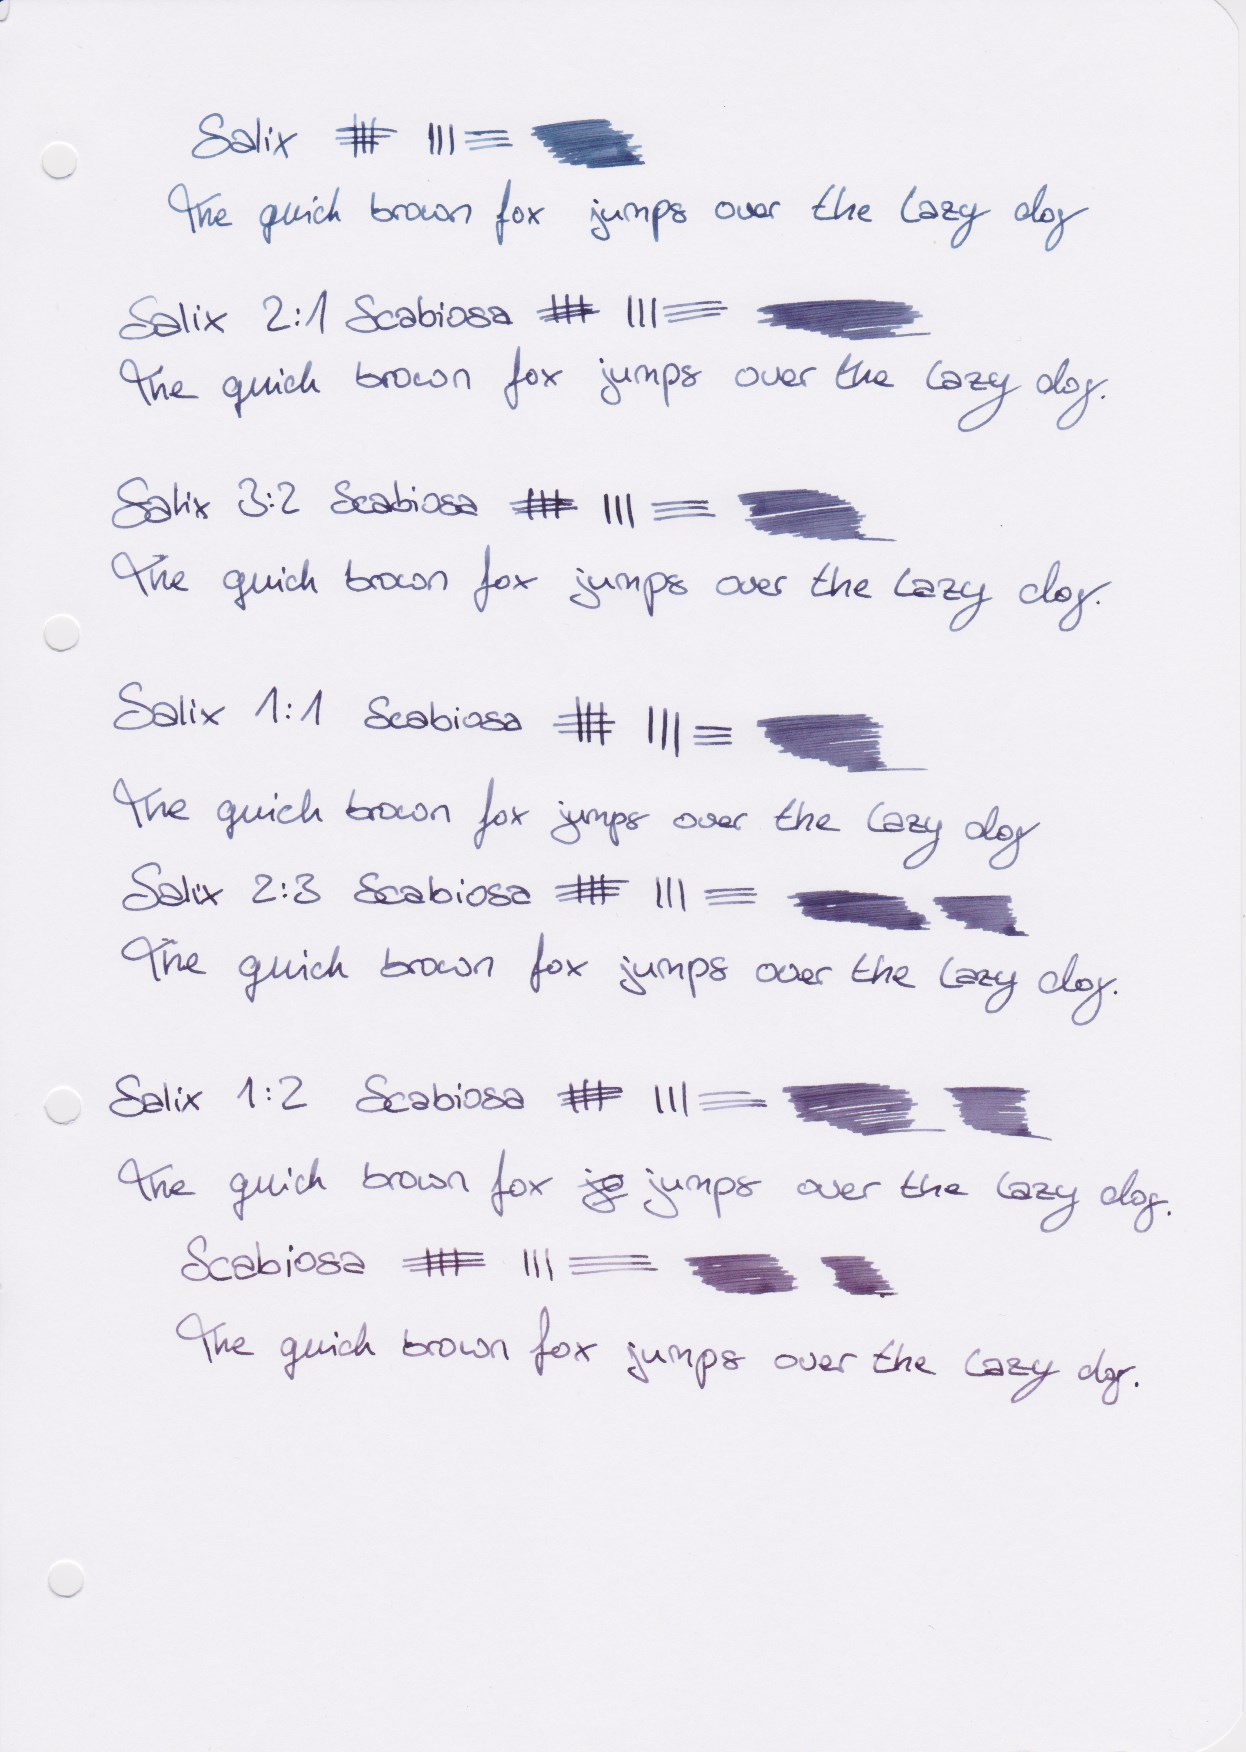 Salix
The quick brown fox jumps over the lazy dog
Salix 2:1 Scabiosa
The quick brown fox jumps over the lazy dog.
Salix 3:2 Scabiosa
The quick brown fox jumps over the lazy dog.
Salix 1:1 Scabiosa
The quick brown fox jumps over the lazy dog
Salix 2:3 Scabiosa
The quick brown fox jumps over the lazy dog.
Salix 1:2 Scabiosa
The quick brown fox jumps over the lazy dog.
Scabiosa
The quick brown fox jumps over the lazy dog.